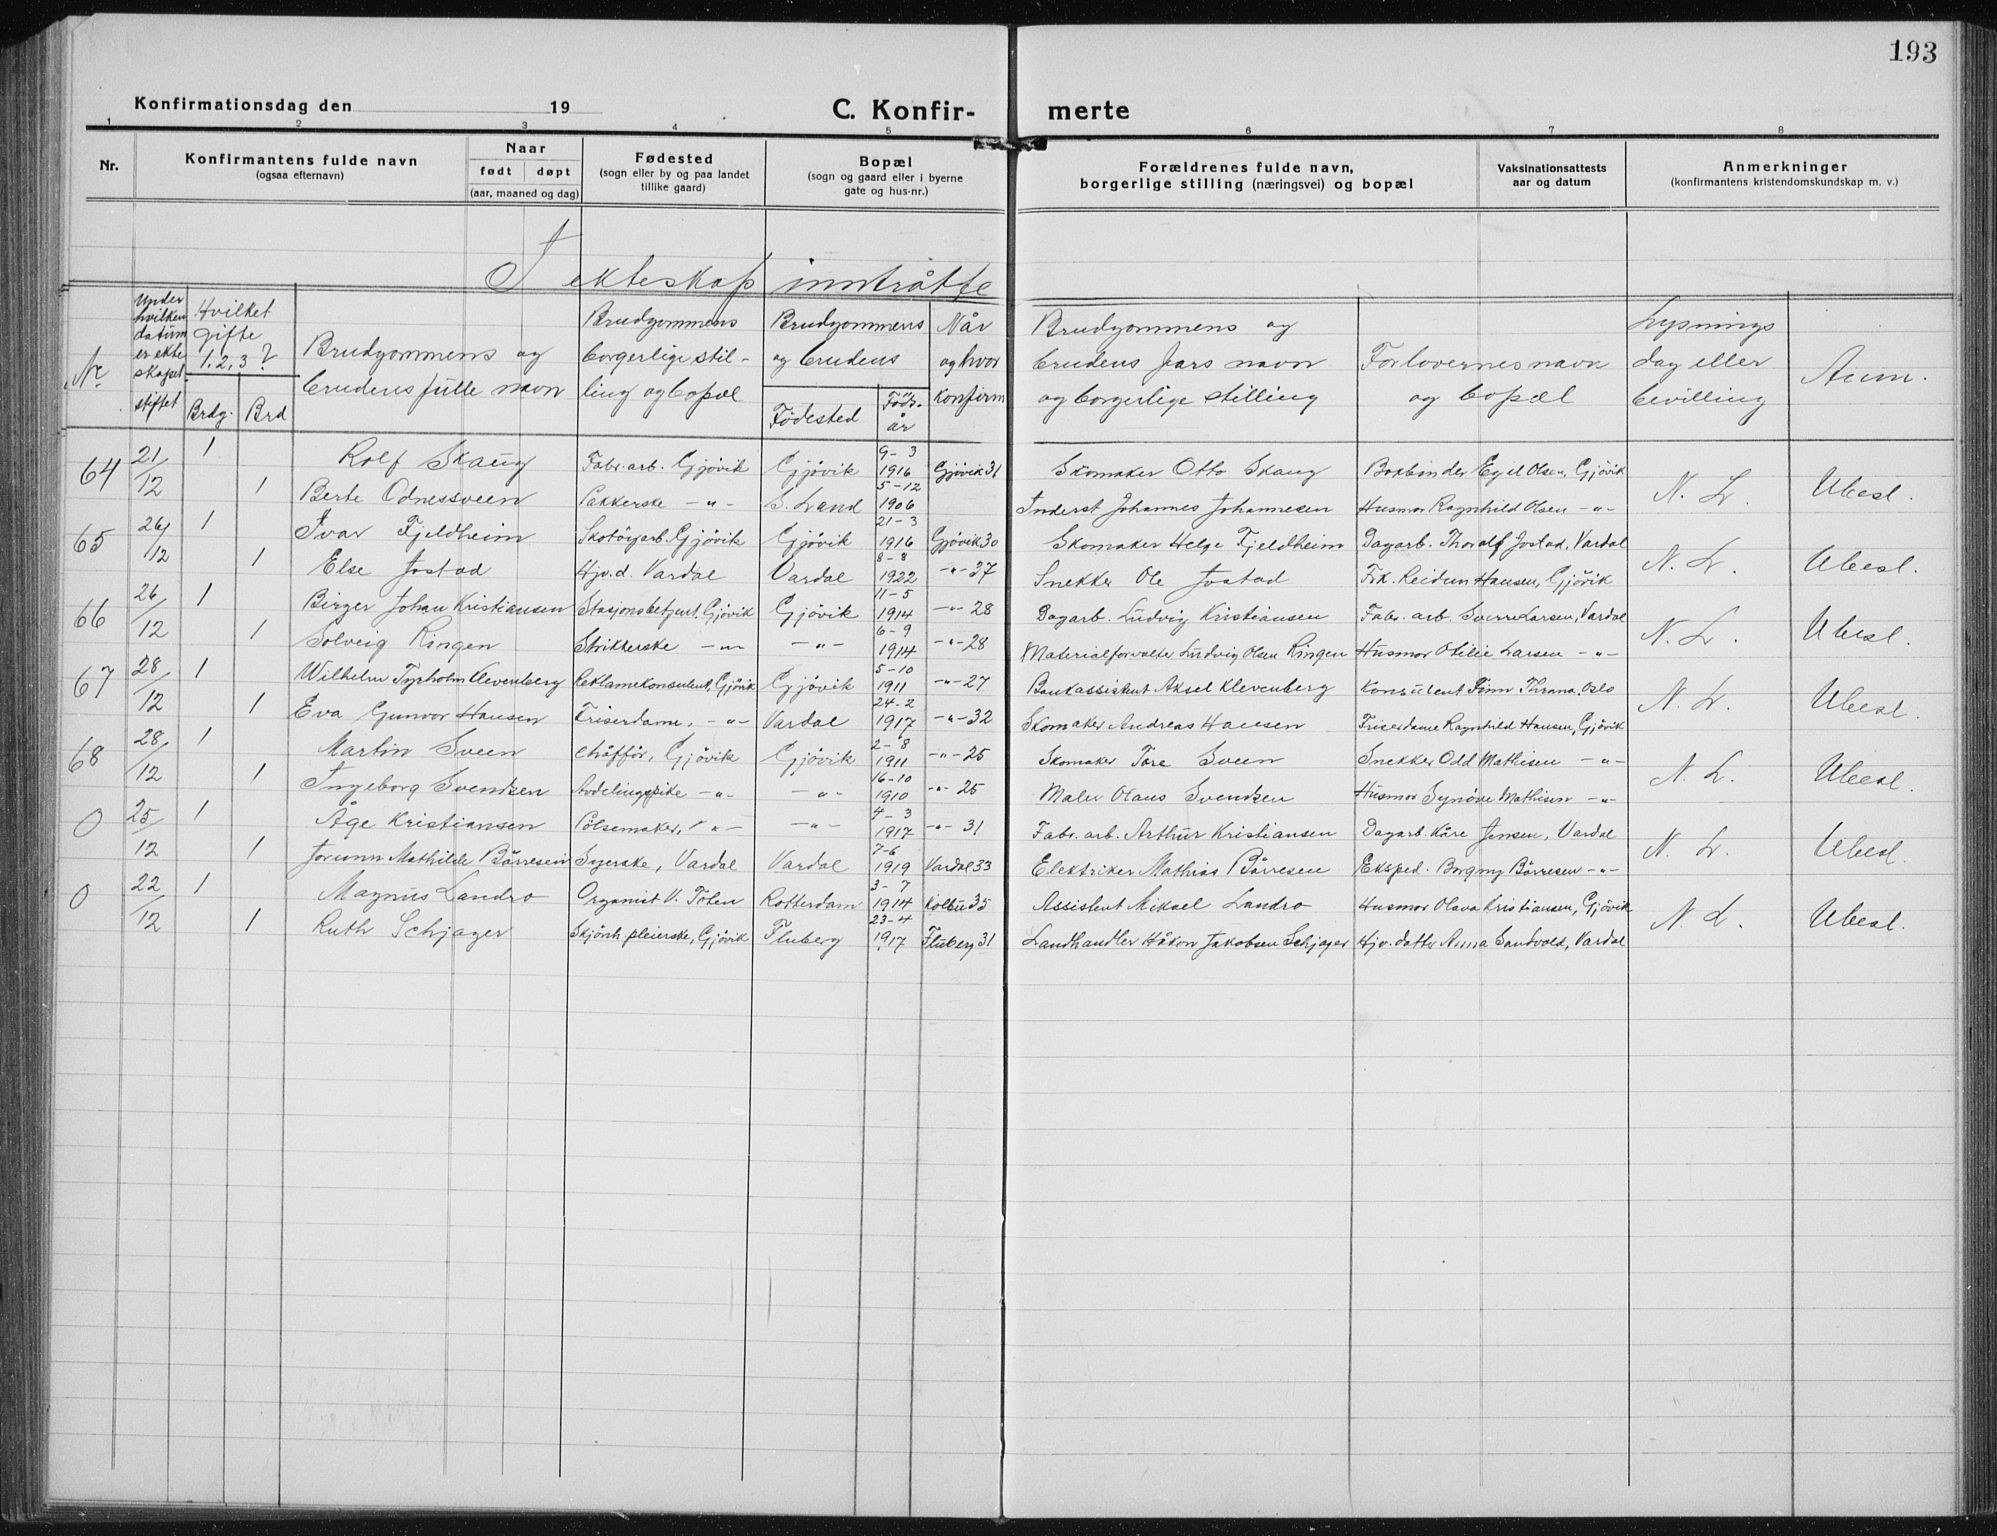 193
Konfirmationsdag den 19
C. Konfir- merte
1 2 3 4 5 6 7 8
Nr. Konfirmantens fulde navn (ogsaa efternavn) Naar født døpt (aar, maaned og dag) Fødested (sogn eller by og paa landet tillike gaard) Bopæl (sogn og gaard eller i byerne gate og hus-nr.) Forældrenes fulde navn, borgerlige stilling (næringsvei) og bopæl Vaksinationsattests aar og datum Anmerkninger (konfirmantens kristendomskundskap m. v.)
I ekteskap inntrådte
Nr. Under hvilken datum er ekteskapet stiftet Hvilket gifte 1, 2, 3? Brdg. Brd Brudgommens og brudens fulle navn Brudgommens borgerlige stilling og bopæl Brudgommens og brudens Fødested Føds. år Når og hvor konfirm Brudgommens og brudens fars navn og borgerlige stilling Forlovernes navn og bopæl Lysnings dag eller bevilling Anm.
64 21/12 1 Rolf Skaug Fabr. arb. Gjövik Gjövik 9-3 1916 Gjövik 31 Skomaker Otto Skaug Bokbinder Egil Olsen, Gjövik N. L. Ubesl.
1 Berte Odnessveen Pakkerske -"- S. Land 5-12 1906 Inderst Johannes Johannesen Husmor Ragnhild Olsen -"-
65 26/12 1 Ivar Fjeldheim Skotöyarb. Gjövik Gjövik 21-3 1916 Gjövik 30 Skomaker Helge Fjeldheim Dagarb. Thoralf Jostad, Vardal N. L. Ubesl.
1 Else Jostad Hjv.d. Vardal Vardal 8-8 1922 -"- 37 Snekker Ole Jostad Frk. Reidun Hansen, Gjövik
66 26/12 1 Birger Johan Kristiansen Stasjonsbetjent, Gjövik Gjövik 11-5 1914 -"- 28 Dagarb. Ludvig Kristiansen Fabr. arb. Sverre Larsen, Vardal N. L. Ubesl.
1 Solveig Ringen Strikkerske -"- -"- 6-9 1914 -"- 28 Materialforvalter Ludvig Olsen Ringen Husmor Otilie Larsen -"-
67 28/12 1 Wilhelm Tyrholm Klevenberg Reklamekonsulent, Gjövik Gjövik 5-10 1911 -"- 27 Bankassistent Aksel Klevenberg Konsulent Finn Thrana, Oslo N. L. Ubesl.
1 Eva Gunvor Hansen Friserdame, -"- Vardal 24-2 1917 -"- 32 Skomaker Andreas Hansen Friserdame Ragnhild Hansen, Gjövik
68 28/12 1 Martin Sveen chåfför, Gjövik Gjövik 2-8 1911 -"- 25 Skomaker Tore Sveen Snekker Odd Mathisen -"- N. L. Ubesl.
1 Ingeborg Svendsen Avdelingspike -"- -"- 16-10 1910 -"- 25 Maler Olaus Svendsen Husmor Synöve Mathisen -"-
0 25/12 1 Åge Kristiansen Pölsemaker, -"- -"- 4-3 1917 -"- 31 Fabr. arb. Arthur Kristiansen Dagarb. Kåre Jensen, Vardal N. L. Ubesl.
1 Jorunn Mathilde Börresen Syerske, Vardal Vardal 7-6 1919 Vardal 33 Elektriker Mathias Börresen Eksped. Borgny Börresen -"-
0 22/12 1 Magnus Landro Organist V. Toten Rotterdam 3-7 1914 Kolbu 35 Assistent Mikael Landro Husmor Olava Kristiansen, Gjövik N. L. Ubesl.
1 Ruth Schjager Skjönh.pleierske, Gjövik Fluberg 23-4 1917 Fluberg 31 Landhandler Håkon Jakobsen Schjager Hjv. datter Anna Sandvold, Vardal